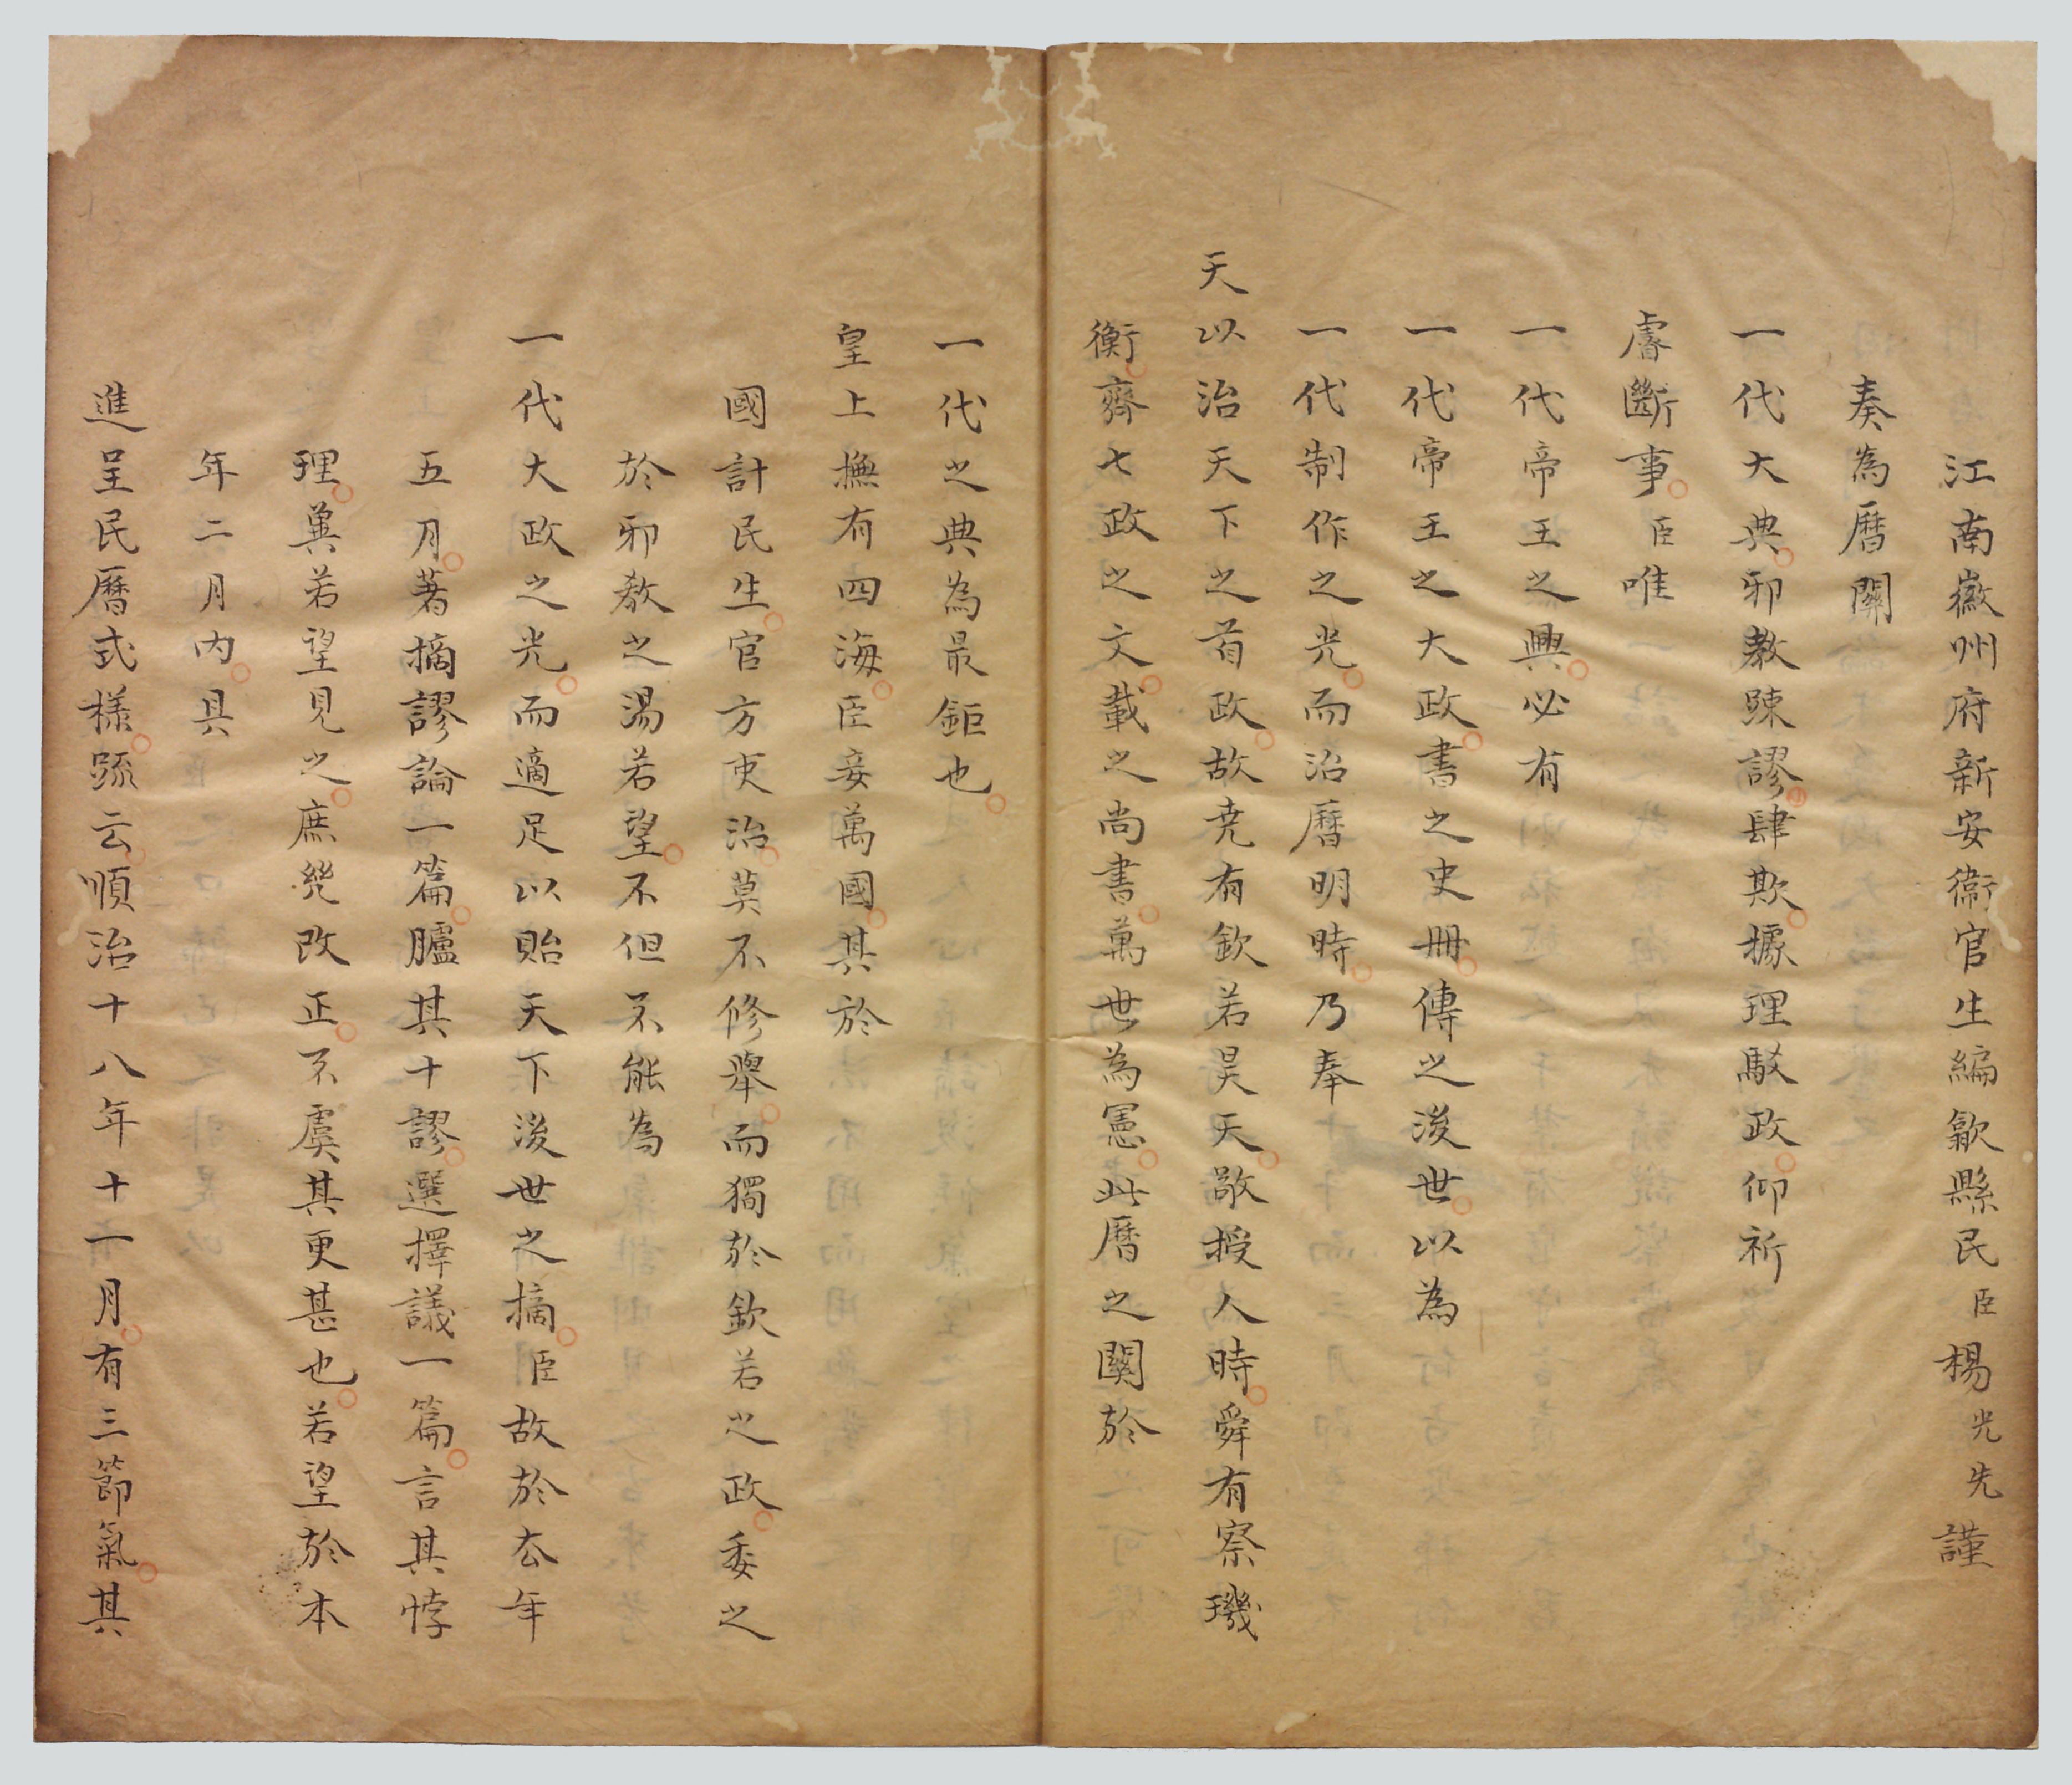 江南徽州府新安衛官生編歙縣民臣楊光先謹
奏為曆關
一代大典邪教踈謬肆欺據理駁政仰祈
睿斷事臣唯
一代帝王之興必有
一代帝王之大政書之史冊傳之後世以為
一代制作之光而治曆明時乃奉
天以治天下之首政故尭有欽若昊天敬授人時舜有察璣
衡齊七政之文載之尚書萬世為憲此曆之關於
一代之典為最鉅也
皇上撫有四海臣妾萬國其於
國計民生官方吏治莫不修舉而獨於欽若之政委之
於邪教之湯若望不但不能為
一代大政之光而適足以貽天下後世之摘臣故於去年
五月著摘謬論一篇臚其十謬選擇議一篇言其悖
理兾若望見之庶幾改正不虞其更甚也若望於本
年二月內具
進呈民曆式樣䟽云順治十八年十一月有三節氣其